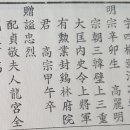 明宗辛卯生 高麗明
宗朝三韓壁上三重
大匡內史令上將軍
有勳業封錫林府院
君 高宗甲午卒
贈諡忠烈
配貞敬夫人龍宮全